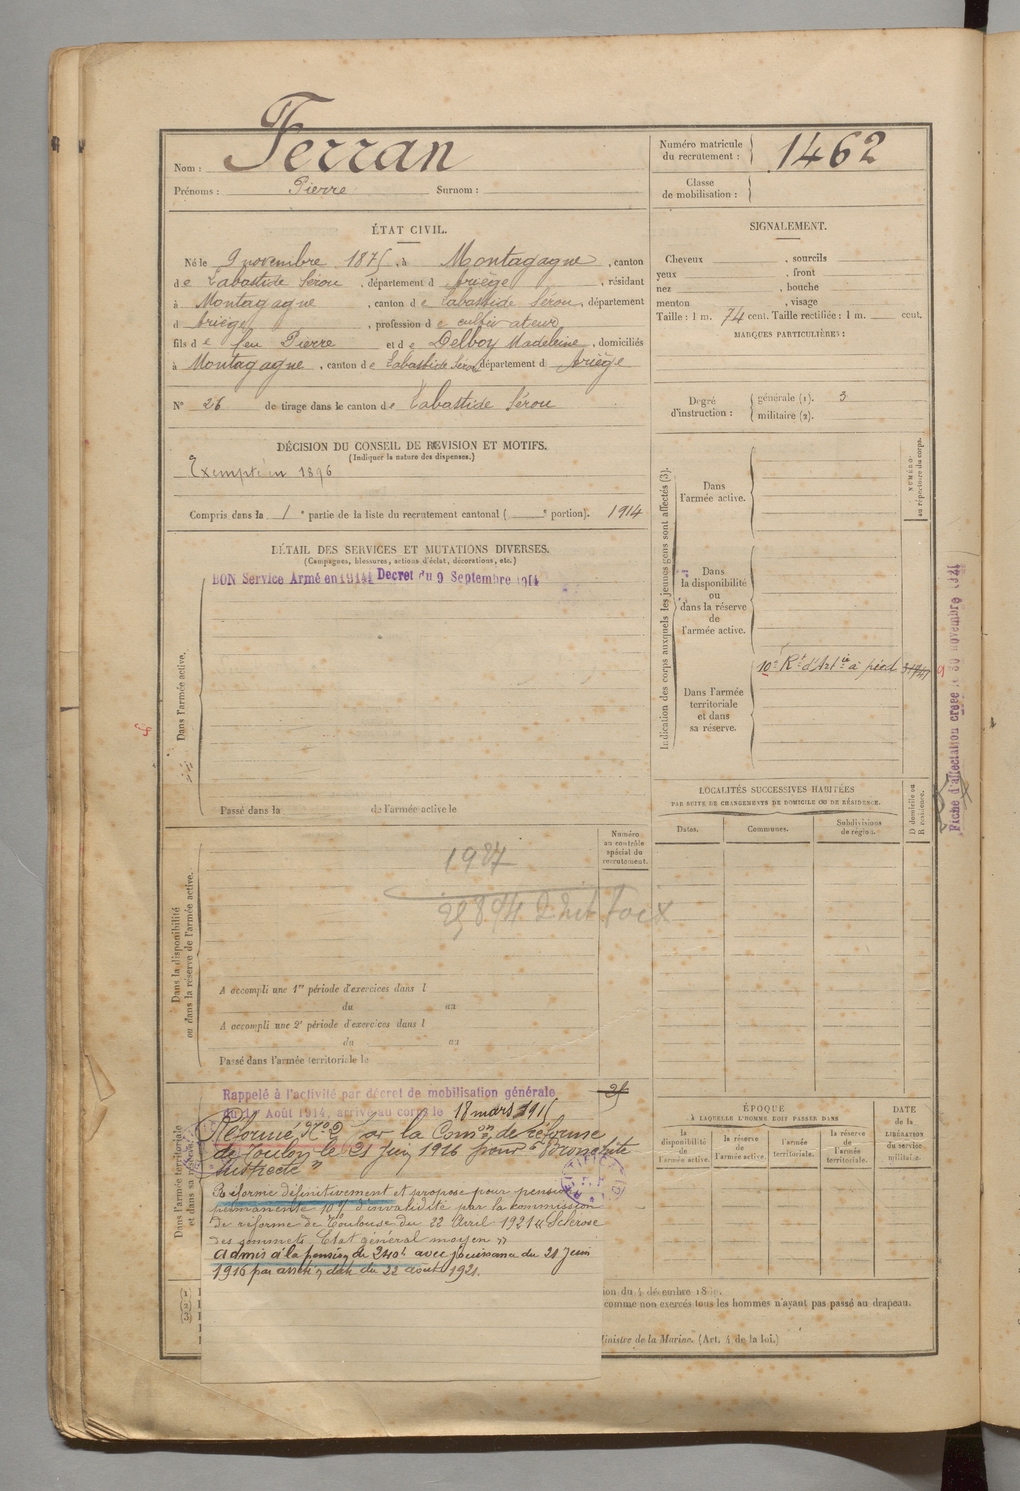 Nom : Ferran
Prénoms : Pierre Surnom :
Numéro matricule
du recrutement : 1462
Classe
de mobilisation :
ÉTAT CIVIL.
Né le 9 novembre 1875, à Montagagne, canton
de Labastide Sérou, département d Ariège, résidant
à Montagagne, canton de Labastide Sérou, département
d Ariège, profession de cultivateur
fils de feu Pierre et de Delboy Madeleine, domiciliés
à Montagagne, canton de Labastide Sérou département d Ariège
N° 26 de tirage dans le canton de Labastide Sérou
DÉCISION DU CONSEIL DE REVISION ET MOTIFS.
(Indiquer la nature des dispenses.)
Exempté en 1896
Compris dans la 1e partie de la liste du recrutement cantonal ( e portion). 1914
SIGNALEMENT.
Cheveux , sourcils
yeux , front
nez , bouche
menton , visage
Taille : 1 m. 74 cent. Taille rectifiée : 1 m. cent.
MARQUES PARTICULIÈRES :
Degré
d'instruction :
générale (1). 3
militaire (2).
DÉTAIL DES SERVICES ET MUTATIONS DIVERSES.
(Campagnes, blessures, actions d'éclat, décorations, etc.)
BON Service Armé en 1914 Decret du 9 Septembre 1914
Dans l'armée active.
Passé dans la de l'armée active le
Indication des corps auxquels les jeunes gens sont affectés (3).
NUMÉRO
au répertoire du corps.
Dans
l'armée active.
Dans
la disponibilité
ou
dans la réserve
de
l'armée active.
Dans l'armée
territoriale
et dans
sa réserve.
10e Rt d'Artie à pied
Fiche d'affectation créée le 30 novembre 1921
LOCALITÉS SUCCESSIVES HABITÉES
PAR SUITE DE CHANGEMENTS DE DOMICILE OU DE RÉSIDENCE.
Dates. Communes. Subdivisions
de région.
D domicile ou
R résidence.
Numéro
au contrôle
spécial du
recrutement.
Dans la disponibilité
ou dans la réserve de l'armée active.
1927
A accompli une 1re période d'exercices dans l
du au
A accompli une 2e période d'exercices dans l
du au
Passé dans l'armée territoriale le
Dans l'armée territoriale
et dans sa réserve.
Rappelé à l'activité par décret de mobilisation générale
du 1er Août 1914, arrivé au corps le 18 mars 1915
Réformé N° 2 par la Comon de réforme
de Toulon le 21 Juin 1916 pour "Bronchite
suspecte"
Réformé définitivement et proposé pour pension
permanente 10% d'invalidité par la commission
de réforme de Toulouse du 22 Avril 1921 "Sclérose
des sommets. Etat général moyen"
Admis à la pension de 240f avec jouissance du 21 Juin
1916 par arrêté en date du 22 août 1921.
ÉPOQUE
À LAQUELLE L'HOMME DOIT PASSER DANS
la
disponibilité
de
l'armée active.
la réserve
de
l'armée active.
l'armée
territoriale.
la réserve
de
l'armée
territoriale.
DATE
de la
LIBÉRATION
du service
militaire.
ion du 4 décembre 18
comme non exercés tous les hommes n'ayant pas passé au drapeau.
Ministre de la Marine. (Art. 4 de la loi.)